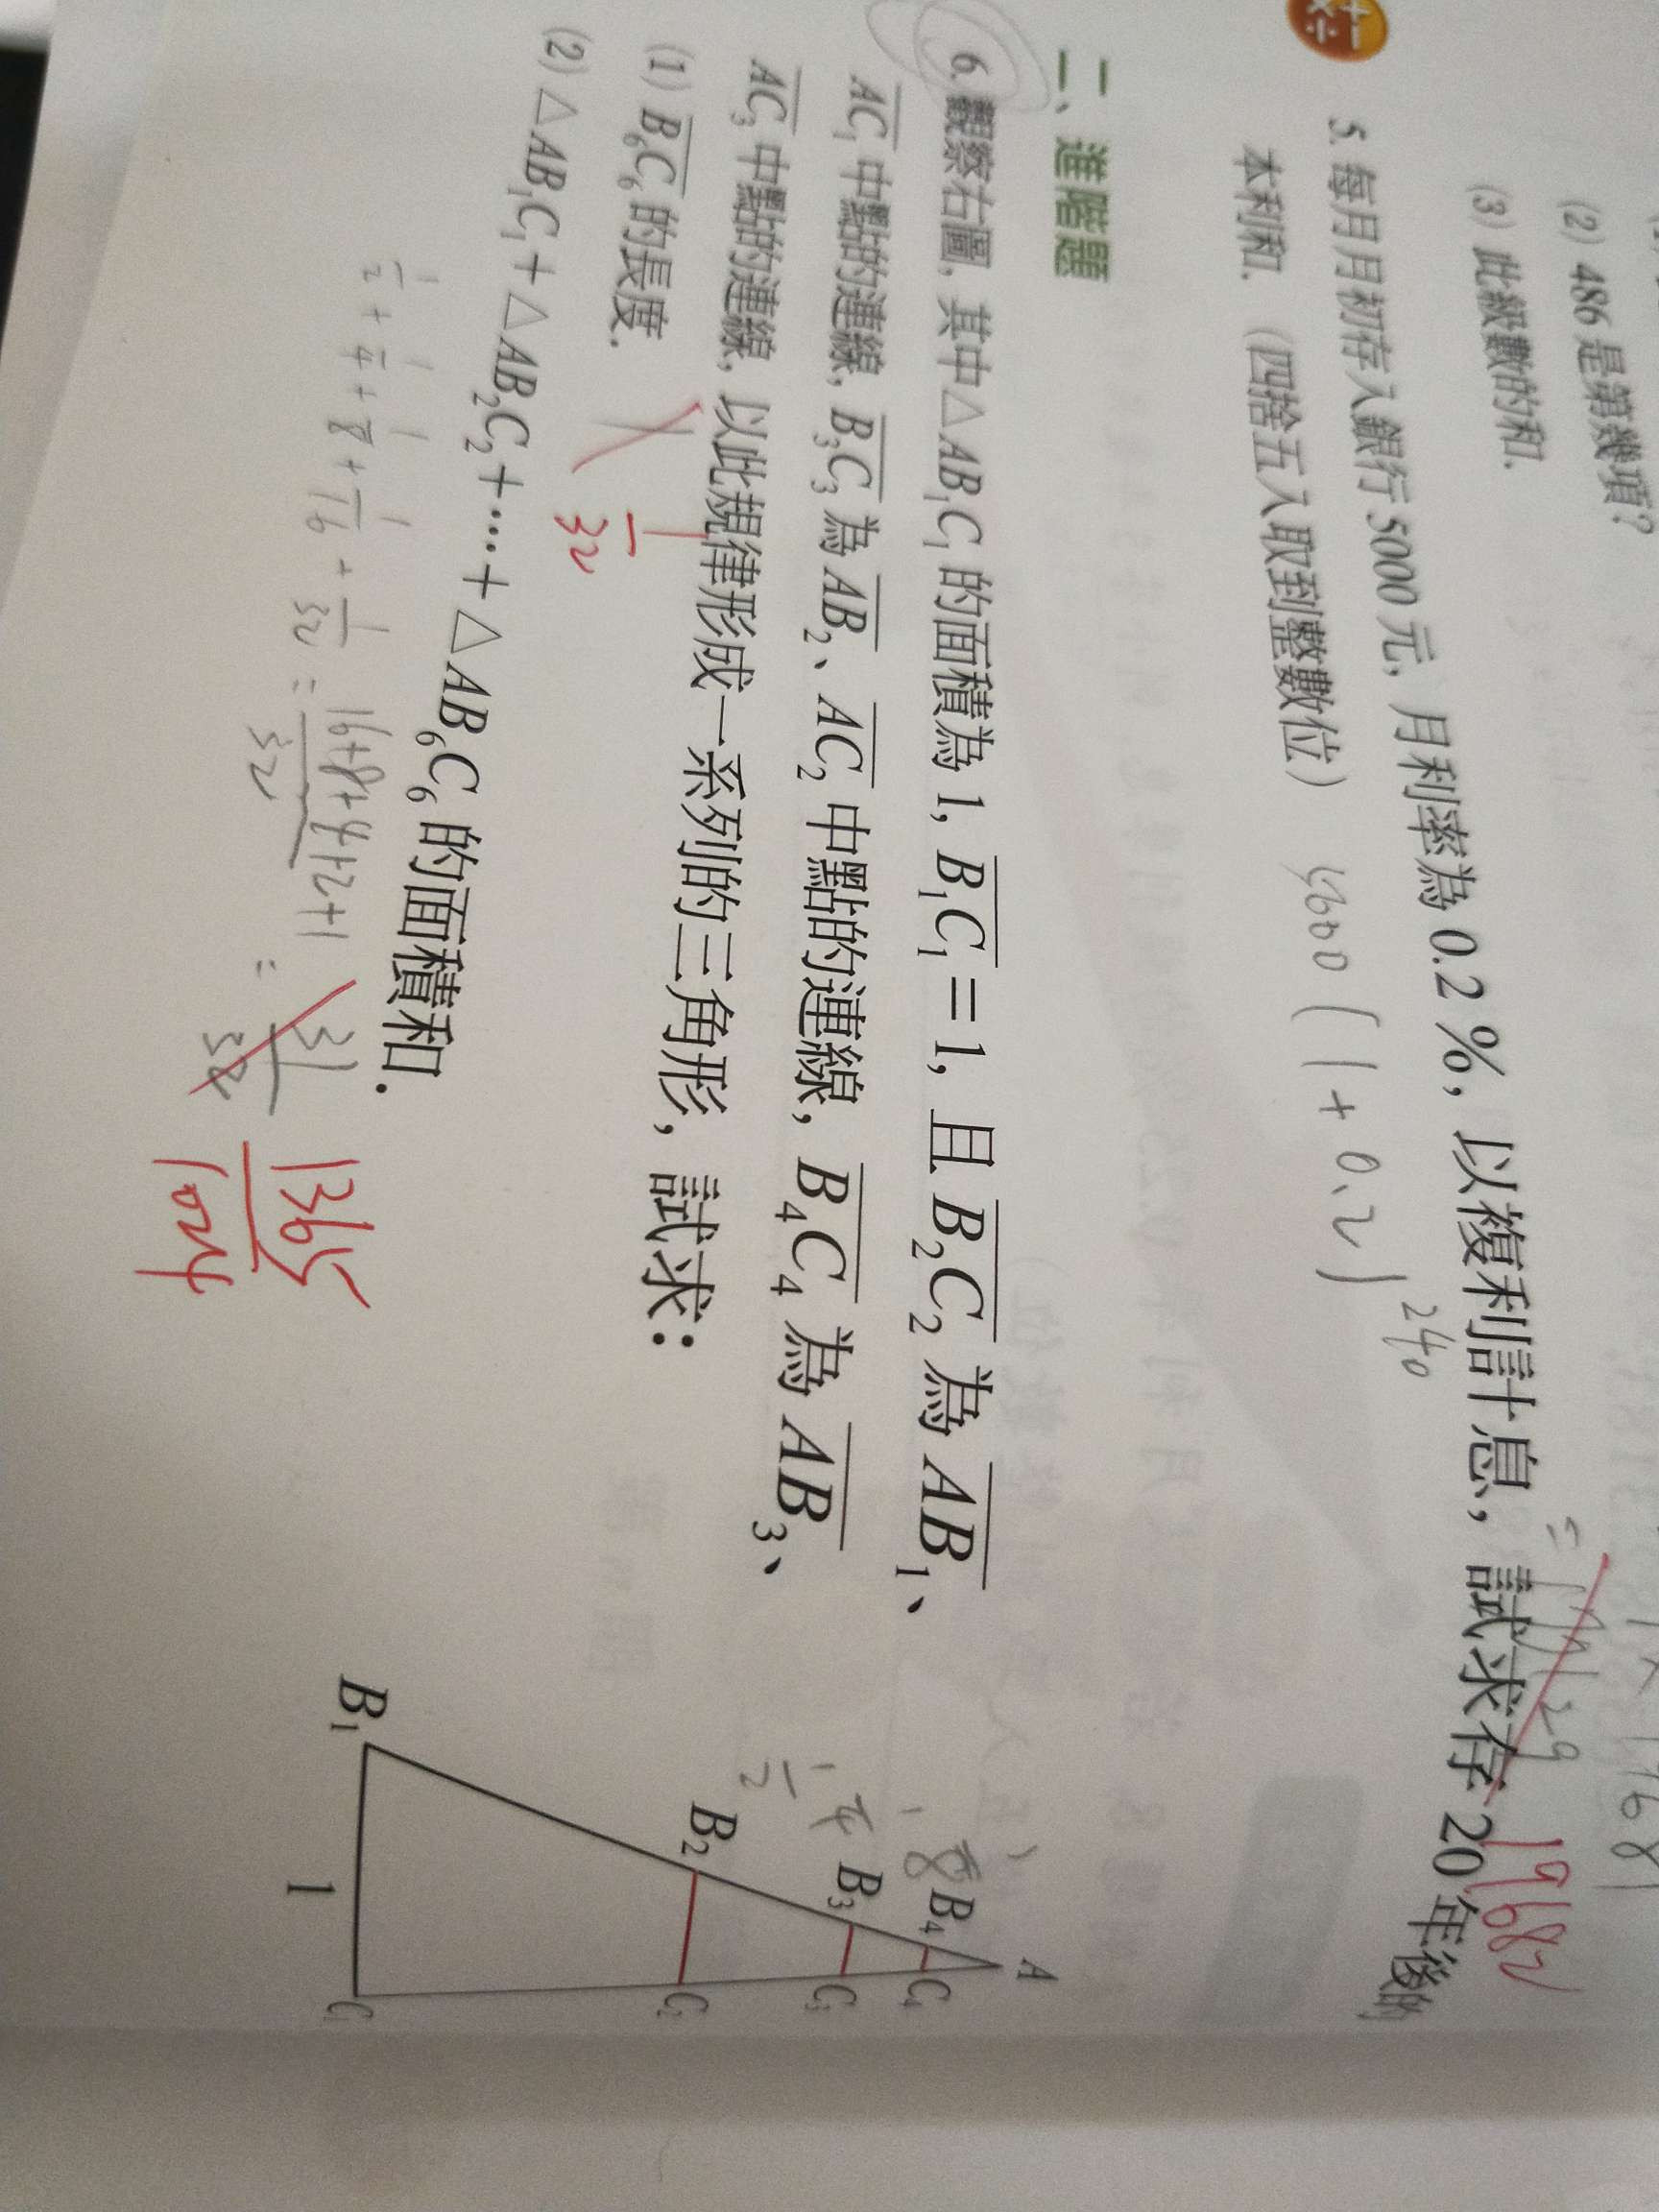 (2) 486 是第幾項?
(3) 此級數的和.
19682
5. 每月月初存入銀行 5000 元, 月利率為 0.2 %, 以複利計息, 試求存 20 年後的
本利和. (四捨五入取到整數位)
5000 ( 1 + 0.2 )²⁴⁰
二、進階題
6. 觀察右圖, 其中△AB₁C₁ 的面積為 1, B₁C₁ = 1, 且 B₂C₂ 為 AB₁、
AC₁ 中點的連線, B₃C₃ 為 AB₂、AC₂ 中點的連線, B₄C₄ 為 AB₃、
AC₃ 中點的連線, 以此規律形成一系列的三角形, 試求:
(1) B₆C₆ 的長度.
1/32
(2) △AB₁C₁ + △AB₂C₂ + ⋯ + △AB₆C₆ 的面積和.
1/2 + 1/4 + 1/8 + 1/16 + 1/32 = 16+8+4+2+1/32 = 31/32
1365/1024
A
B₄ C₄
B₃ C₃
B₂ C₂
B₁ C₁
1
1/8
1/4
1/2